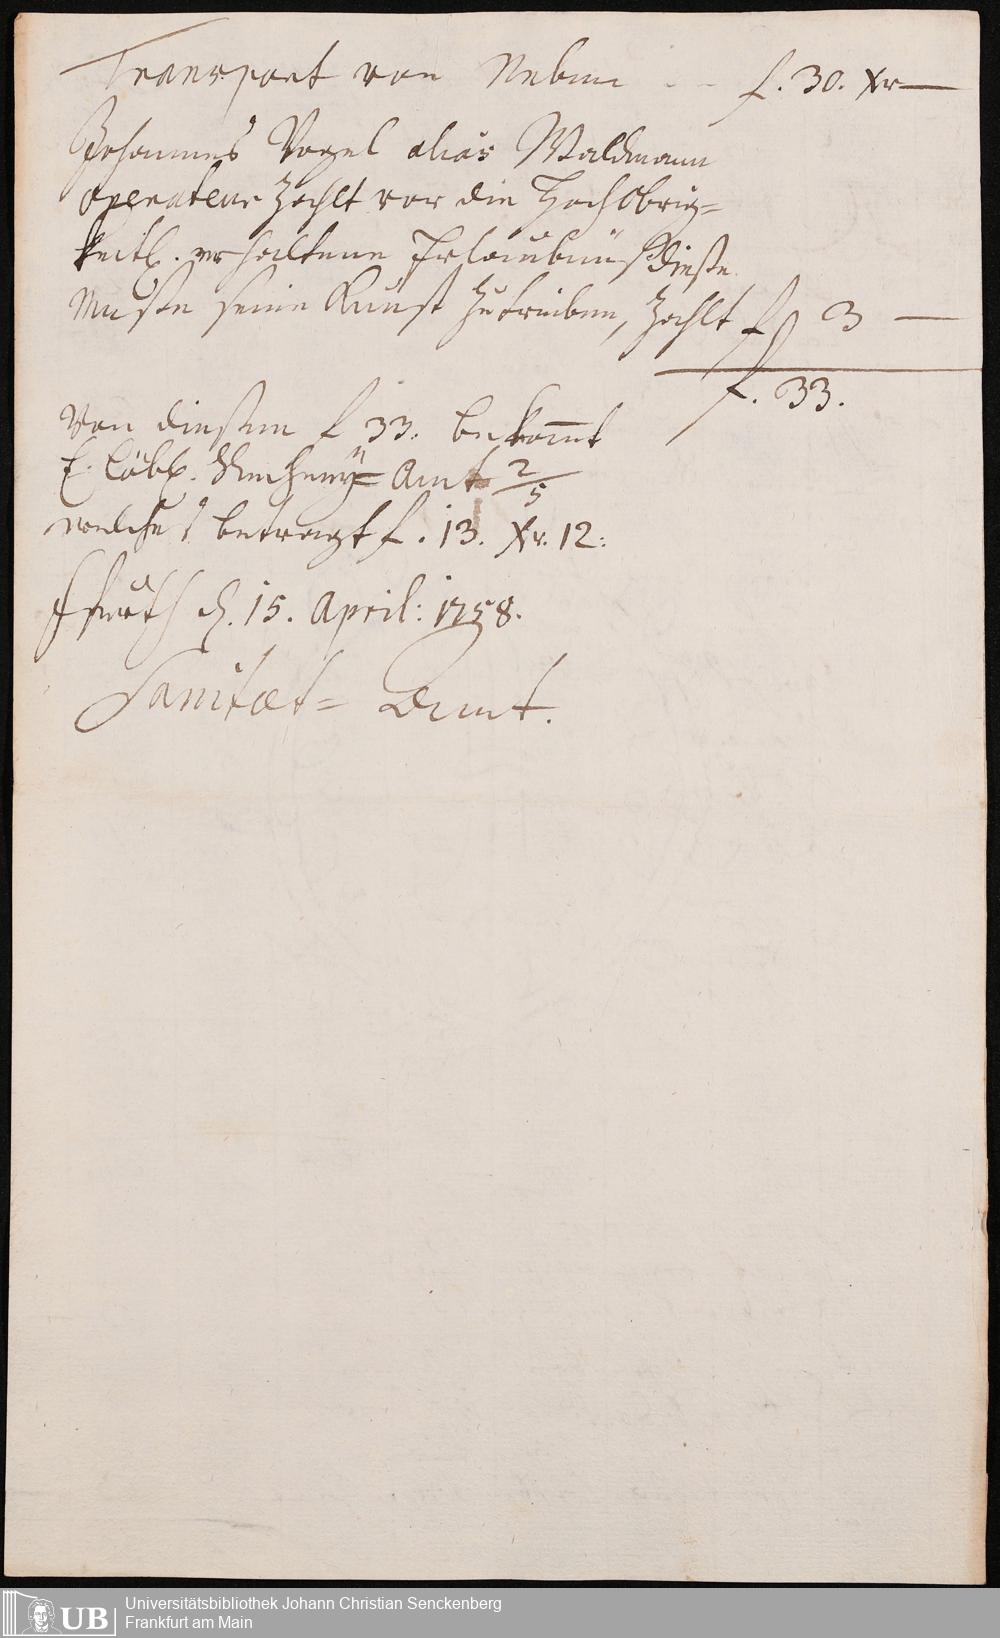 Transport von Neben - - f. 30. Xr —
Johannes Vogel alias Waldmann
operateur zahlt vor die Hochobrig=
keitl. erhaltene Erlaubnüß dieße
Meße seine Kunst zu treiben, zahlt f 3 —
f. 33.
Von dießen f 33. bekom̅t
E. Löbl. Recheney=Amt 2/5
welches betragt f. 13. Xr. 12:
Ffurth d. 15. April: 1758.
Sanitæt=Amt.
UB
Universitätsbibliothek Johann Christian Senckenberg
Frankfurt am Main